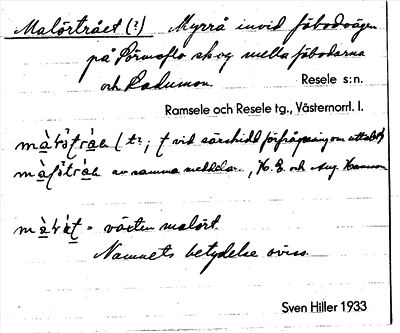 Malörtrået (?) Myrrå invid fäbodvägen
på Pörmoflo skog mella fäbodarna
och Ladumon. Resele s:n.
Ramsele och Resele tg., Västernorrl. l.
(t?; t vid särskild förfrågning om uttalet)
av samma meddelar., K. E. och Aug. Hansson
= växten malört.
Namnets betydelse oviss.
Sven Hiller 1933